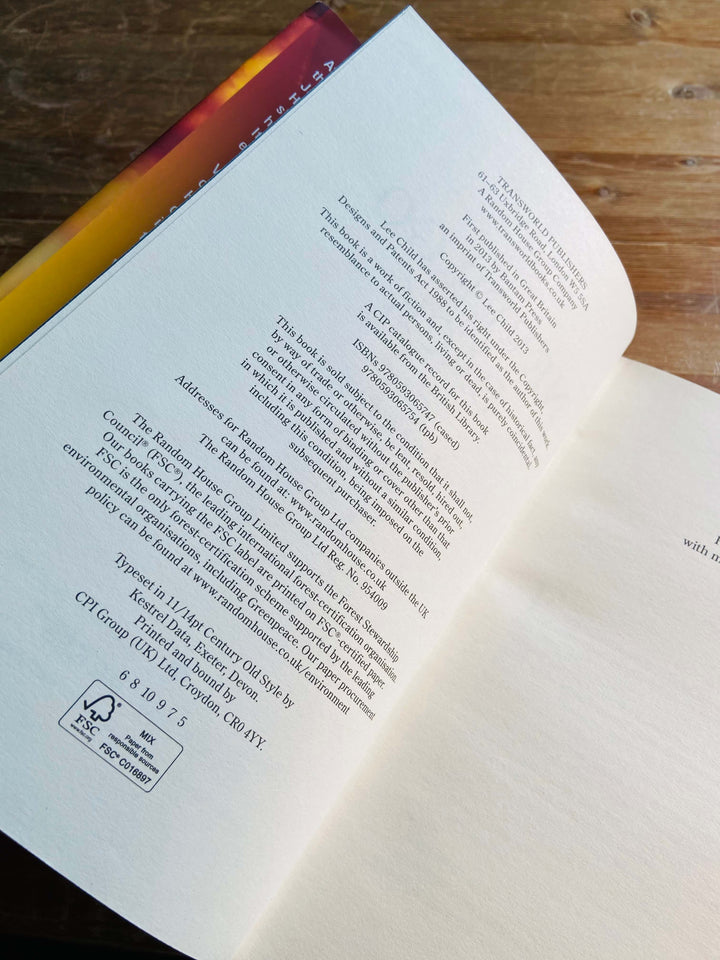 TRANSWORLD PUBLISHERS
61–63 Uxbridge Road, London W5 5SA
A Random House Group Company
www.transworldbooks.co.uk
First published in Great Britain
in 2013 by Bantam Press
an imprint of Transworld Publishers
Copyright © Lee Child 2013
Lee Child has asserted his right under the Copyright,
Designs and Patents Act 1988 to be identified as the author of this work.
This book is a work of fiction and, except in the case of historical fact, any
resemblance to actual persons, living or dead, is purely coincidental.
A CIP catalogue record for this book
is available from the British Library.
ISBNs 9780593065747 (cased)
9780593065754 (tpb)
This book is sold subject to the condition that it shall not,
by way of trade or otherwise, be lent, resold, hired out,
or otherwise circulated without the publisher's prior
consent in any form of binding or cover other than that
in which it is published and without a similar condition,
including this condition, being imposed on the
subsequent purchaser.
Addresses for Random House Group Ltd companies outside the UK
can be found at: www.randomhouse.co.uk
The Random House Group Ltd Reg. No. 954009
The Random House Group Limited supports the Forest Stewardship
Council® (FSC®), the leading international forest-certification organisation.
Our books carrying the FSC label are printed on FSC®-certified paper.
FSC is the only forest-certification scheme supported by the leading
environmental organisations, including Greenpeace. Our paper procurement
policy can be found at www.randomhouse.co.uk/environment
Typeset in 11/14pt Century Old Style by
Kestrel Data, Exeter, Devon.
Printed and bound by
CPI Group (UK) Ltd, Croydon, CR0 4YY.
6 8 10 9 7 5
FSC
www.fsc.org
MIX
Paper from
responsible sources
FSC® C016897
with